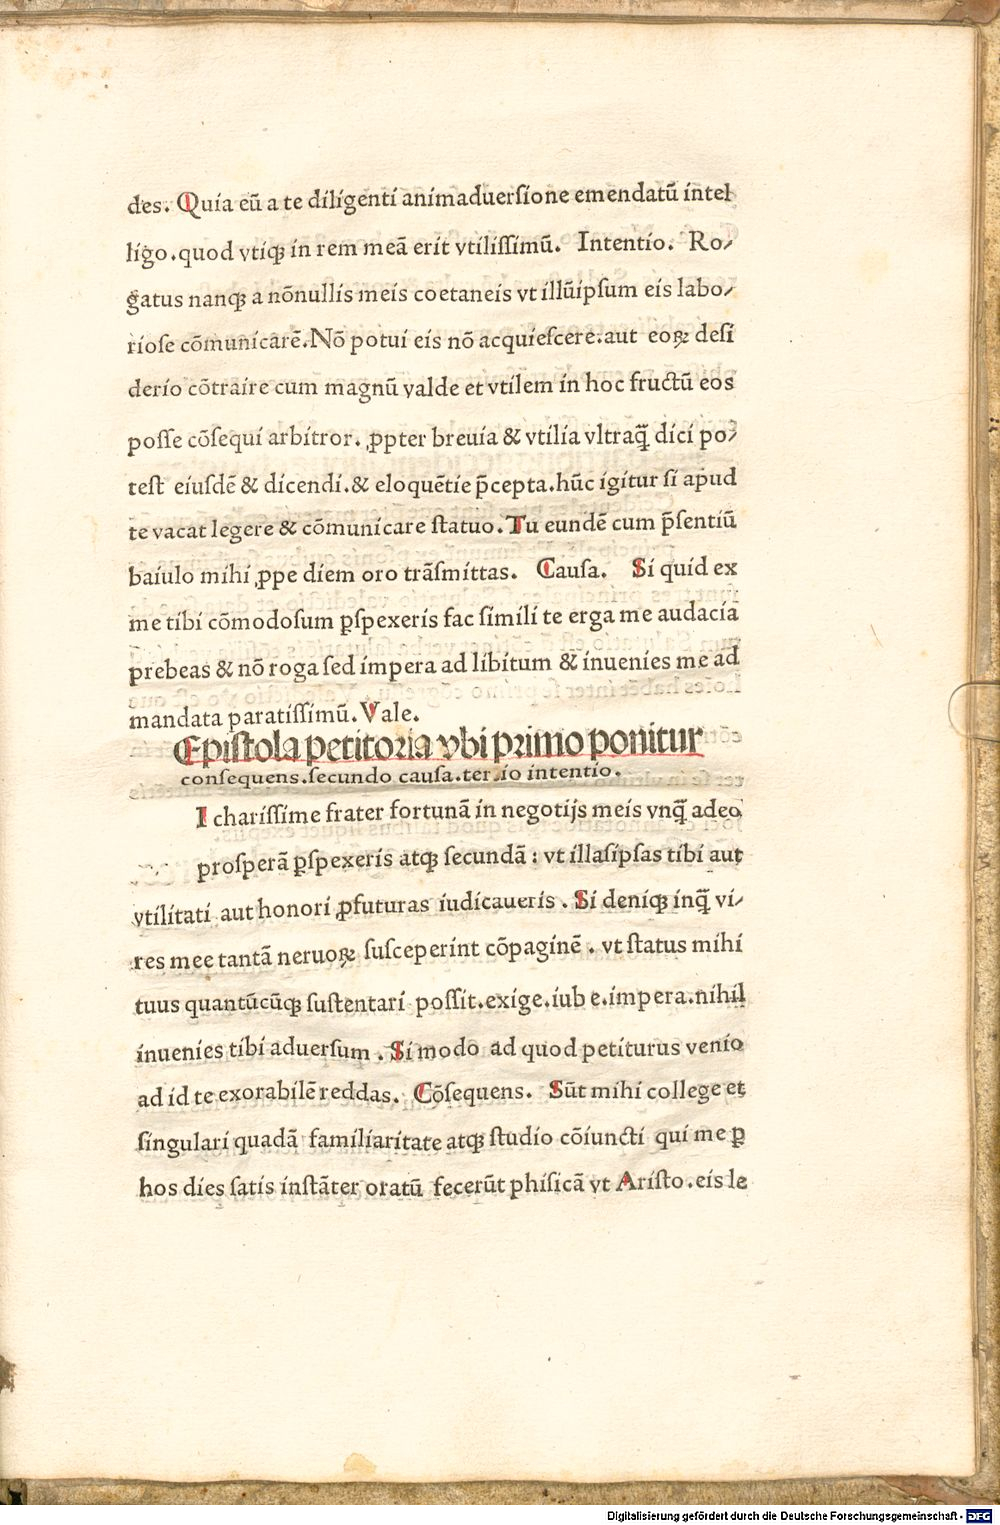 des. Quia eũ a te diligenti animaduerſione emendatũ intel
ligo.quod vtiqꝫ in rem meã erit vtiliſſimũ. Intentio. Ro⸗
gatus nanqꝫ a nõnullis meis coetaneis vt illũipſum eis labo⸗
rioſe cõmunicarẽ.Nõ potui eis nõ acquieſcere.aut eoꝝ deſi
derio cõtraire cum magnũ valde et vtilem in hoc fructũ eos
poſſe cõſequi arbitror. ꝓpter breuia & vtilia vltraq̃ꝫ dici po⸗
teſt eiuſdẽ & dicendi.& eloquẽtie p̃cepta.hũc igitur ſi apud
te vacat legere & cõmunicare ſtatuo. Tu eundẽ cum p̃ſentiũ
baiulo mihi ꝓpe diem oro trãſmittas. Cauſa. Si quid ex
me tibi cõmodoſum ꝑſpexeris fac ſimili te erga me audacia
prebeas & nõ roga ſed impera ad libitum & inuenies me ad
mandata paratiſſimũ. Vale.
Epiſtola petitoria vbi primo ponitur
conſequens.ſecundo cauſa.ter io intentio.
I chariſſime frater fortunã in negotijs meis vnq̃ꝫ adeo
proſperã ꝑſpexeris atqꝫ ſecundã : vt illasipſas tibi aut
vtilitati aut honori ꝓfuturas iudicaueris . Si deniqꝫ inq̃ꝫ vi⸗
res mee tantã neruoꝝ ſuſceperint cõpaginẽ . vt ſtatus mihi
tuus quantũcũqꝫ ſuſtentari poſſit.exige.iub e.impera.nihil
inuenies tibi aduerſum . Si modo ad quod petiturus venio
ad id te exorabilẽ reddas. Cõſequens. Sũt mihi college et
ſingulari quadã familiaritate atqꝫ ſtudio cõiuncti qui me ꝑ
hos dies ſatis inſtãter oratũ fecerũt phiſicã vt Ariſto.eis le
Digitalisierung gefördert durch die Deutsche Forschungsgemeinschaft - DFG